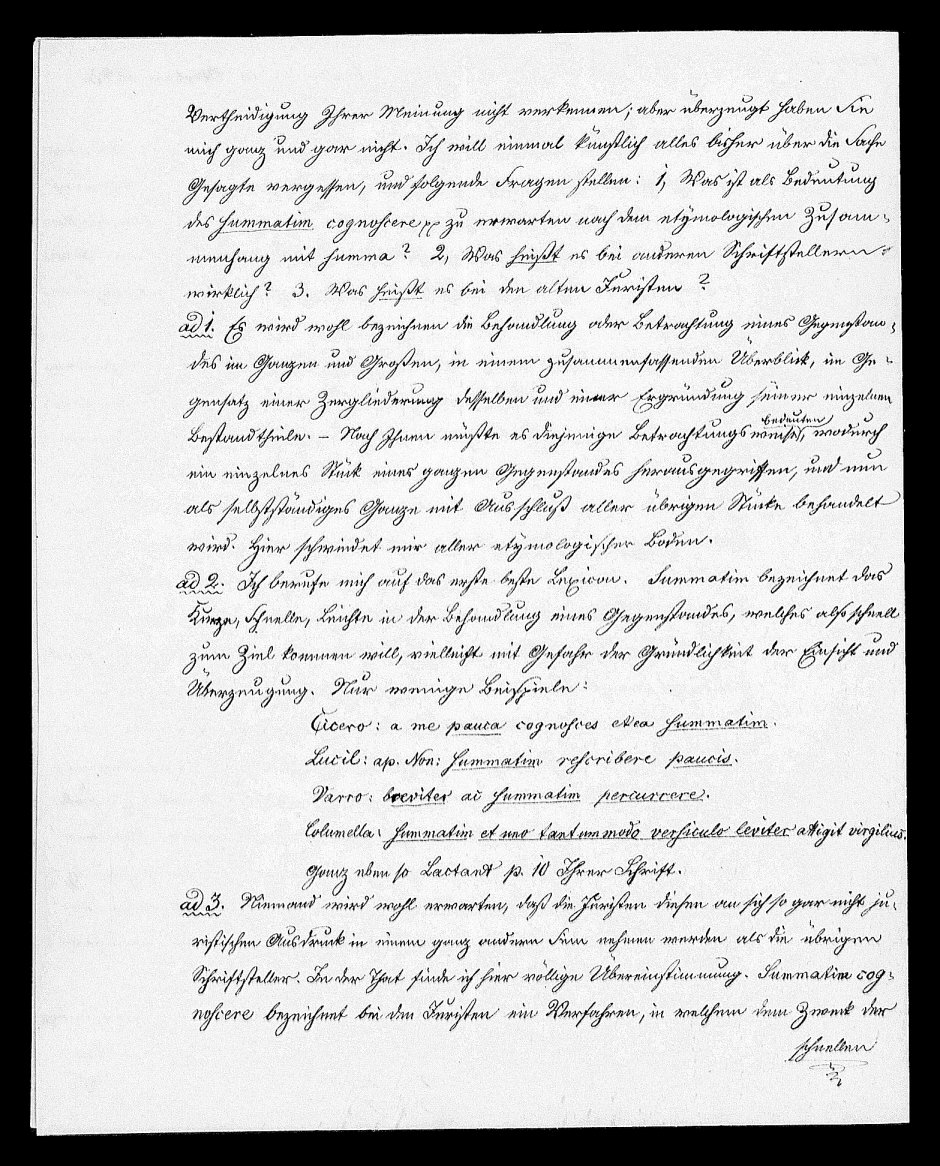 Vertheidigung Ihrer Meinung nicht verkennen; aber überzeugt haben Sie
mich ganz und gar nicht. Ich will einmal künstlich alles bisher über die Sache
Gesagte vergessen, und folgende Fragen stellen: 1, Was ist als Bedeutung
des summatim cognoscere pp zu erwarten nach dem etymologischen Zusam-
menhang mit summa? 2, Was heißt es bei anderen Schriftstellern
wirklich? 3. Was heißt es bei den alten Juristen?
ad 1. Es wird wohl bezeichnen die Behandlung oder Betrachtung eines Gegenstan-
des im Ganzen und Großen, in einem zusammenfassenden Überblick, im Ge-
gensatz einer Zergliederung desselben und einer Ergründung seiner einzelnen
Bestandtheile. – Nach Ihnen müßte es diejenige Betrachtungsweise bedeuten, wodurch
ein einzelnes Stück eines ganzen Gegenstandes herausgegriffen, und nun
als selbstständiges Ganze mit Ausschluß aller übrigen Stücke behandelt
wird. Hier schwindet mir aller etymologischer Boden.
ad 2. Ich berufe mich auf das erste beste Lexicon. Summatim bezeichnet das
Kurze, Schnelle, Leichte in der Behandlung eines Gegenstandes, welches also schnell
zum Ziel kommen will, vielleicht mit Gefahr der Gründlichkeit der Einsicht und
Überzeugung. Nur wenige Beispiele:
Cicero: a me pauca cognosces et ea summatim.
Lucil: ap. Non: summatim rescribere paucis.
Varro: breviter ac summatim percurrere.
Columella: summatim et uno tantummodo versiculo leviter attigit virgilius.
Ganz eben so Lactant p. 10 Ihrer Schrift.
ad 3. Niemand wird wohl erwarten, daß die Juristen diesen an sich so gar nicht ju-
ristischen Ausdruck in einem ganz andern Sinn nehmen werden als die übrigen
Schriftsteller. In der That finde ich hier völlige Übereinstimmung. Summatim cog-
noscere bezeichnet bei den Juristen ein Verfahren, in welchem dem Zweck der
schnellen